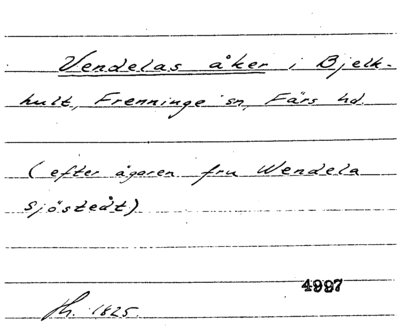 Vendelas åker i Bjelk-
hult, Frenninge sn, Färs hd.
(efter ägaren fru Wendela
Sjöstedt)
4997
1825.